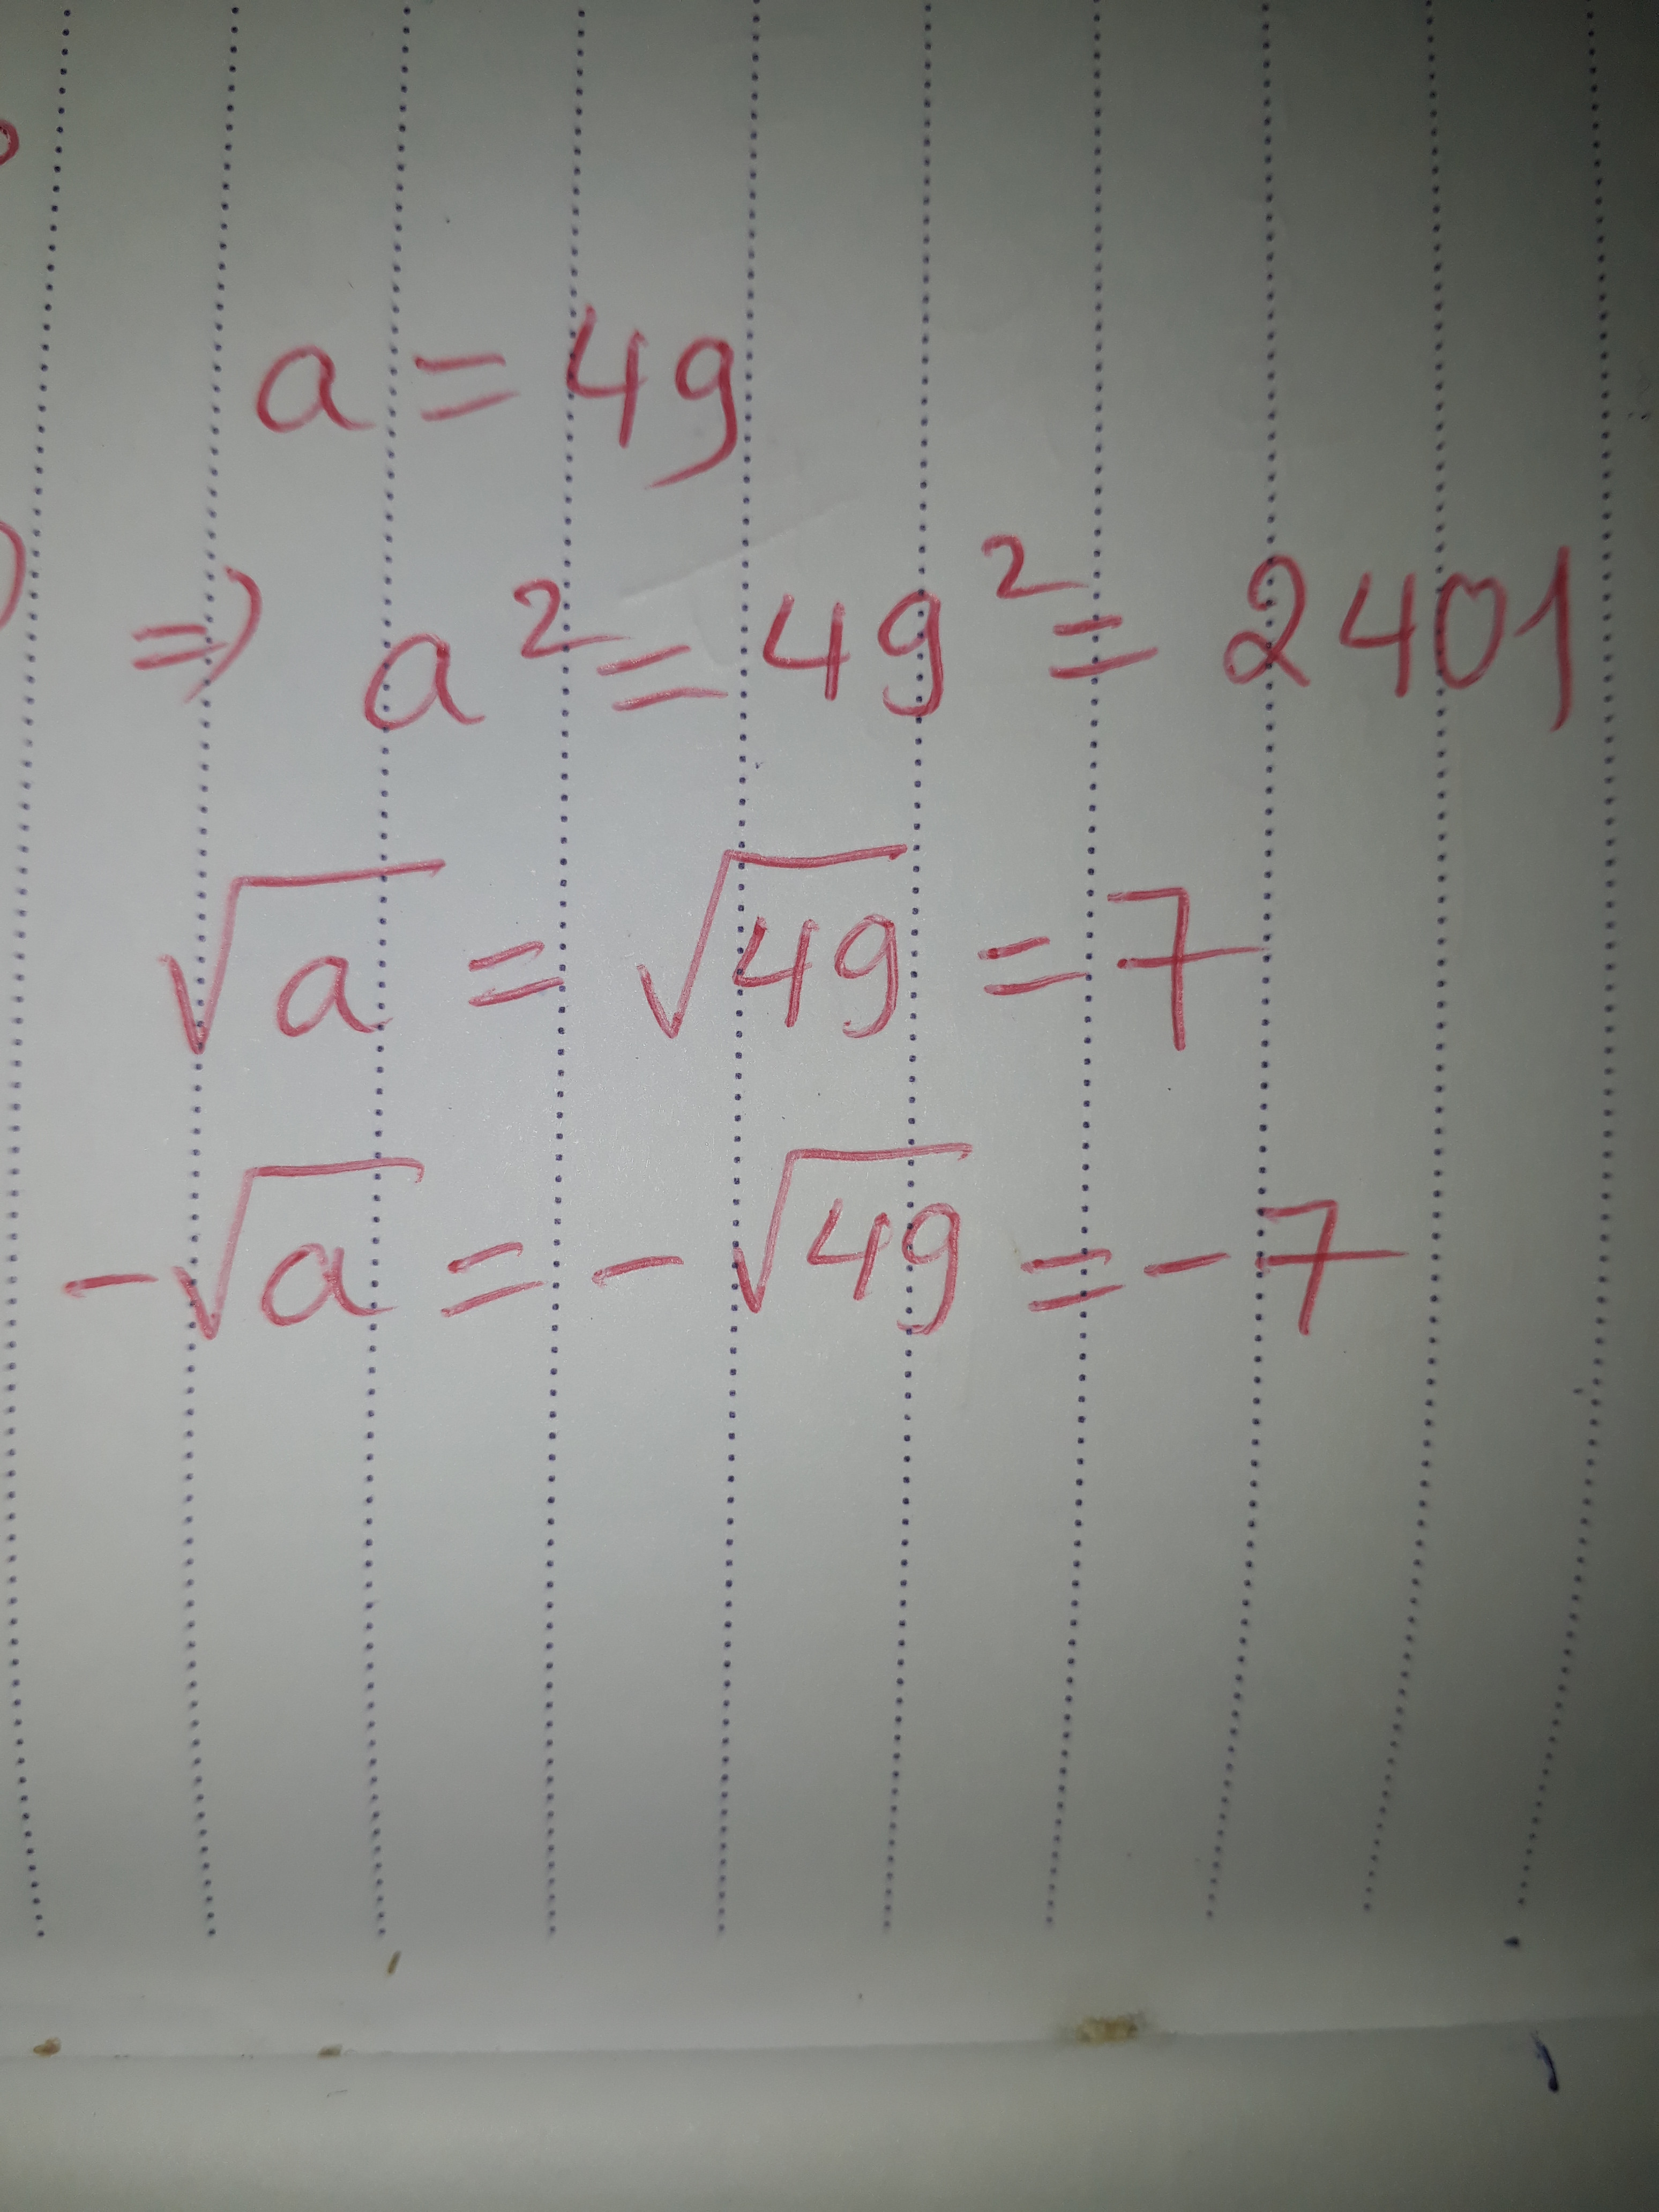 a = 49
⇒ a² = 49² = 2401
√a = √49 = 7
-√a = -√49 = -7